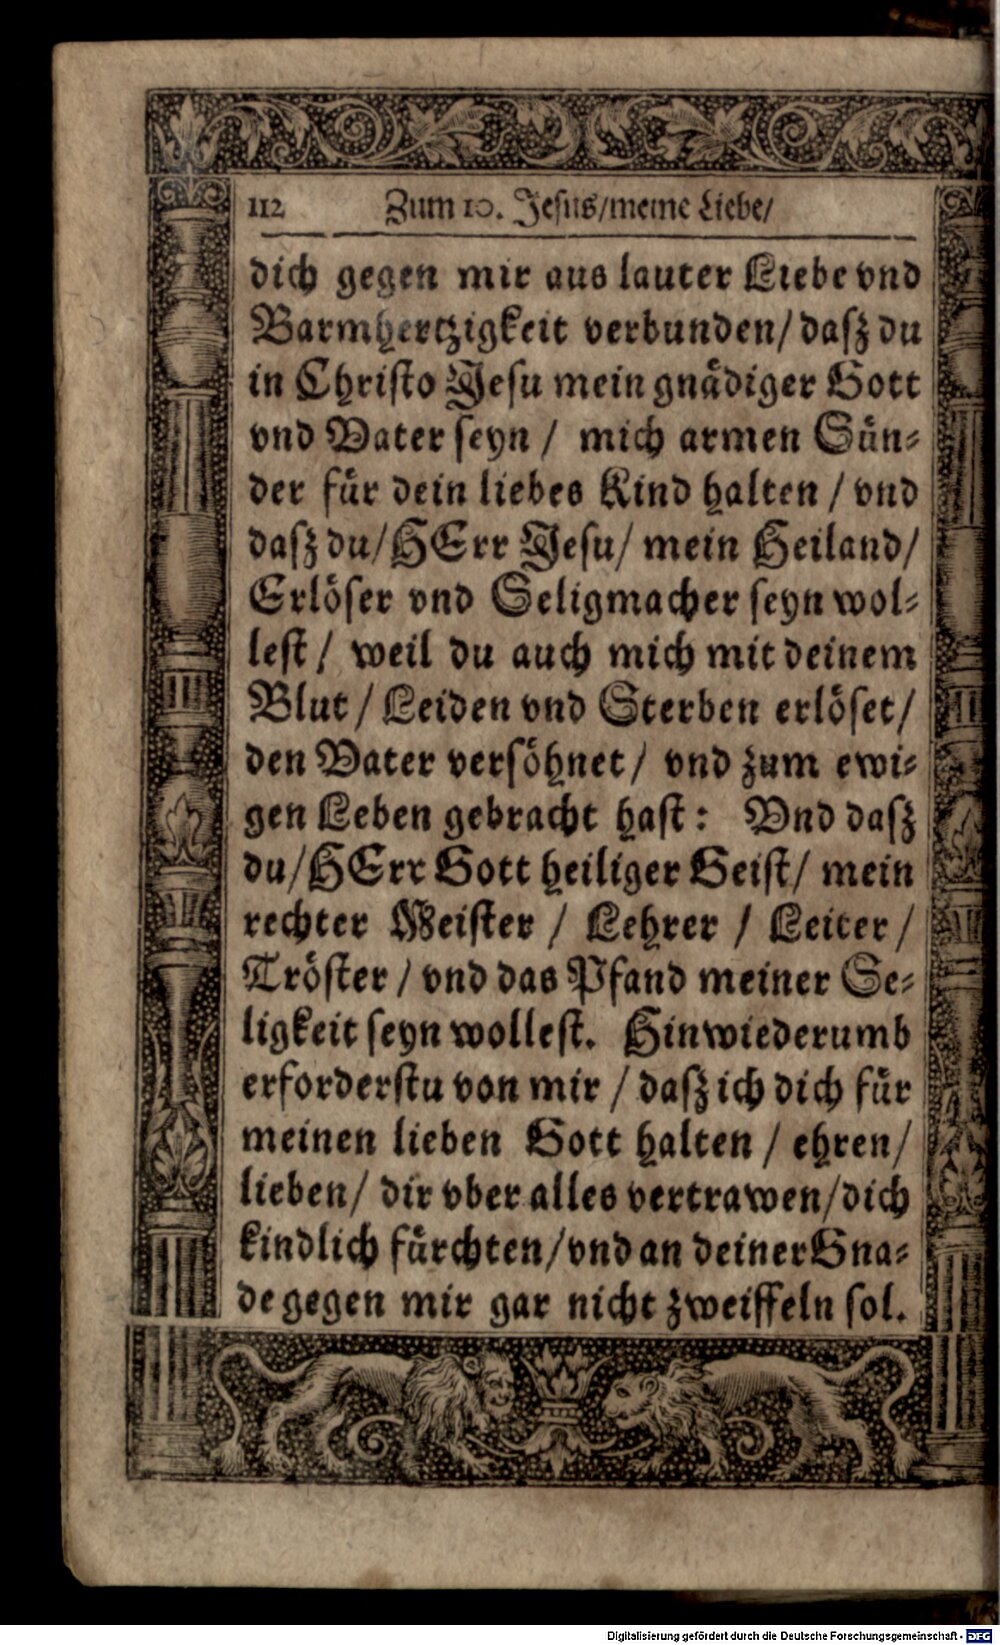 112 Zum 10. Jesus/meine Liebe/
dich gegen mir aus lauter Liebe vnd
Barmhertzigkeit verbunden/ daſz du
in Chriſto Jeſu mein gnaͤdiger Gott
vnd Vater ſeyn / mich armen Suͤn-
der fuͤr dein liebes Kind halten / vnd
daſz du/HErr Jeſu/ mein Heiland/
Erloͤſer vnd Seligmacher ſeyn wol-
leſt / weil du auch mich mit deinem
Blut / Leiden vnd Sterben erloͤſet/
den Vater verſoͤhnet / vnd zum ewi-
gen Leben gebracht haſt: Vnd daſz
du/HErr Gott heiliger Geiſt/ mein
rechter Meiſter / Lehrer / Leiter /
Troͤſter / vnd das Pfand meiner Se-
ligkeit ſeyn wolleſt. Hinwiederumb
erforderſtu von mir / daſz ich dich fuͤr
meinen lieben Gott halten / ehren/
lieben/ dir vber alles vertrawen/dich
kindlich fuͤrchten/vnd an deiner Gna-
de gegen mir gar nicht zweiffeln ſol.
Digitalisierung gefördert durch die Deutsche Forschungsgemeinschaft - DFG